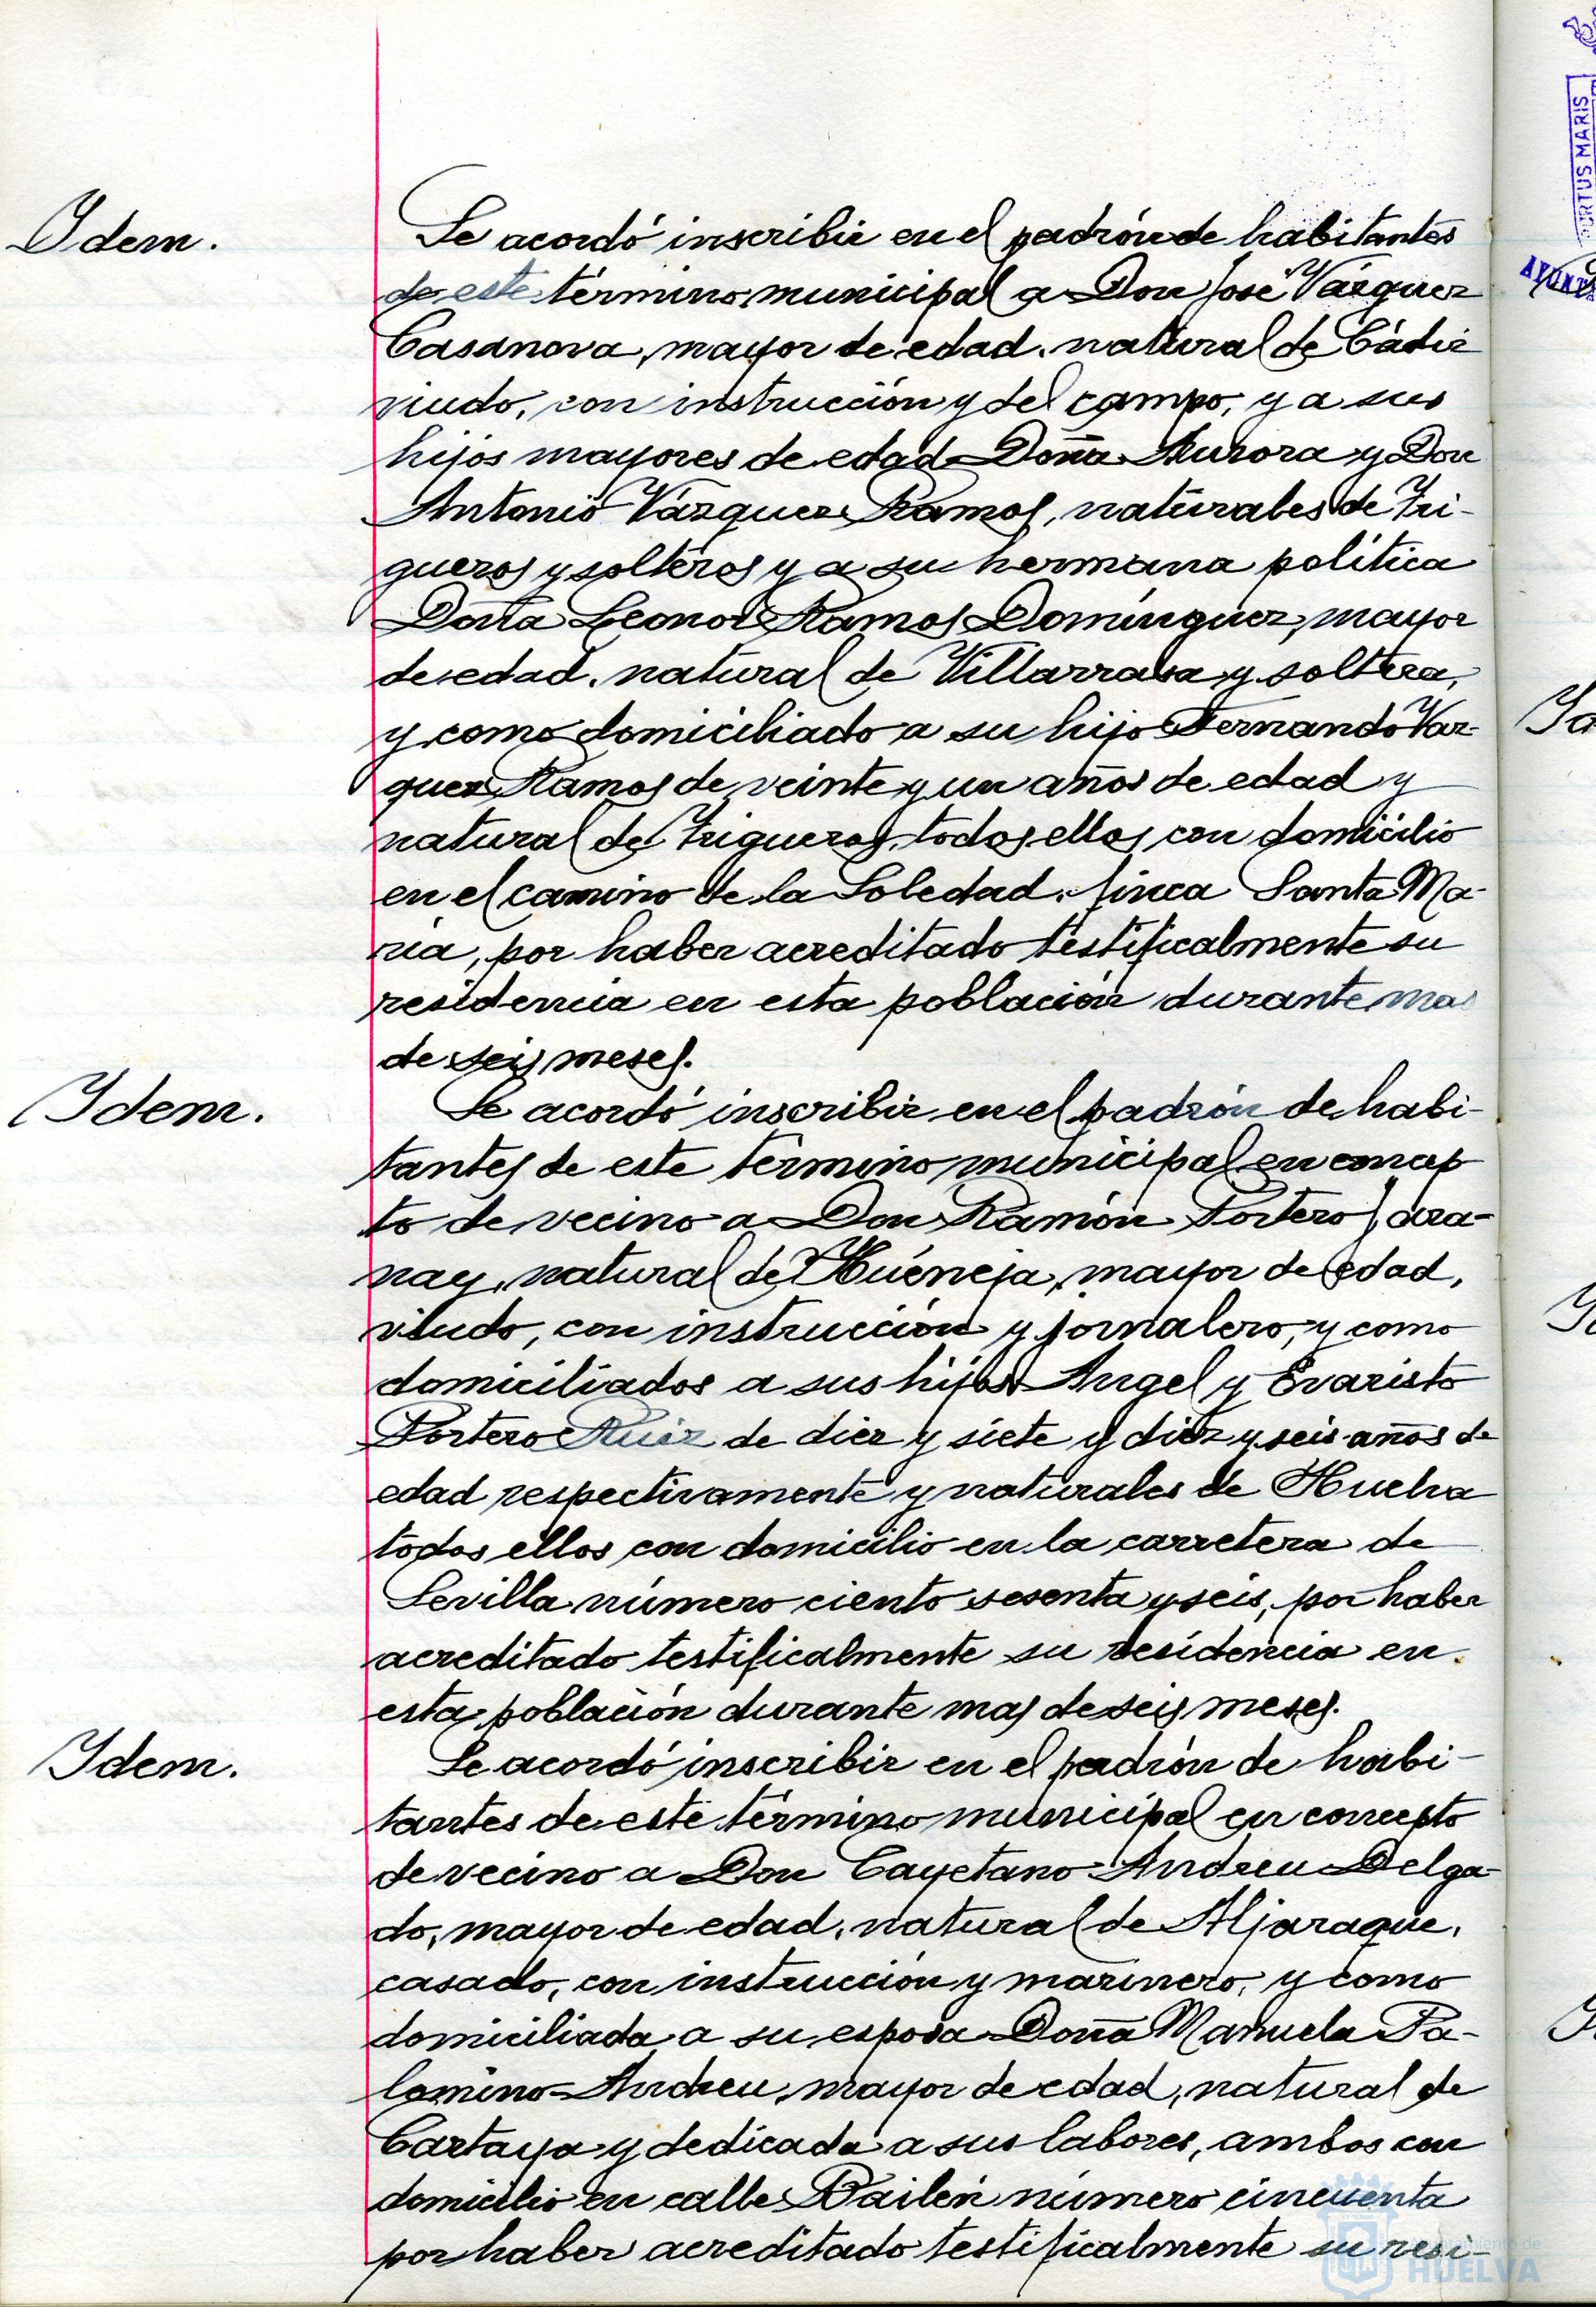 Idem.
Se acordó inscribir en el padrón de habitantes
de este término municipal a Don José Vázquez
Casanova, mayor de edad, natural de Cádiz
viudo, con instrucción y del campo, y a sus
hijos mayores de edad Doña Aurora y Don
Antonio Vázquez Ramos, naturales de Tri-
gueros y solteros y a su hermana política
Doña Leonor Ramos Domínguez, mayor
de edad, natural de Villarrasa y soltera,
y como domiciliado a su hijo Fernando Váz-
quez Ramos de veinte y un años de edad y
natural de Trigueros, todos ellos con domicilio
en el camino de la Soledad, finca Santa Ma-
ría, por haber acreditado testificalmente su
residencia en esta población durante mas
de seis meses.
Idem.
Se acordó inscribir en el padrón de habi-
tantes de este término municipal en concep
to de vecino a Don Ramón Portero
nay, natural de Huéneja, mayor de edad,
viudo, con instrucción y jornalero, y como
domiciliados a sus hijos Angel y Evaristo
Portero Ruiz de diez y siete y diez y seis años de
edad respectivamente y naturales de Huelva
todos ellos con domicilio en la carretera de
Sevilla número ciento sesenta y seis, por haber
acreditado testificalmente su residencia en
esta población durante mas de seis meses.
Idem.
Se acordó inscribir en el padrón de habi-
tantes de este término municipal en concepto
de vecino a Don Cayetano Andreu Delga-
do, mayor de edad, natural de Aljaraque,
casado, con instrucción y marinero, y como
domiciliada a su esposa Doña Manuela Pa-
lomino Andreu, mayor de edad, natural de
Cartaya y dedicada a sus labores, ambos con
domicilio en calle Bailén número cincuenta
por haber acreditado testificalmente su resi-
HUELVA